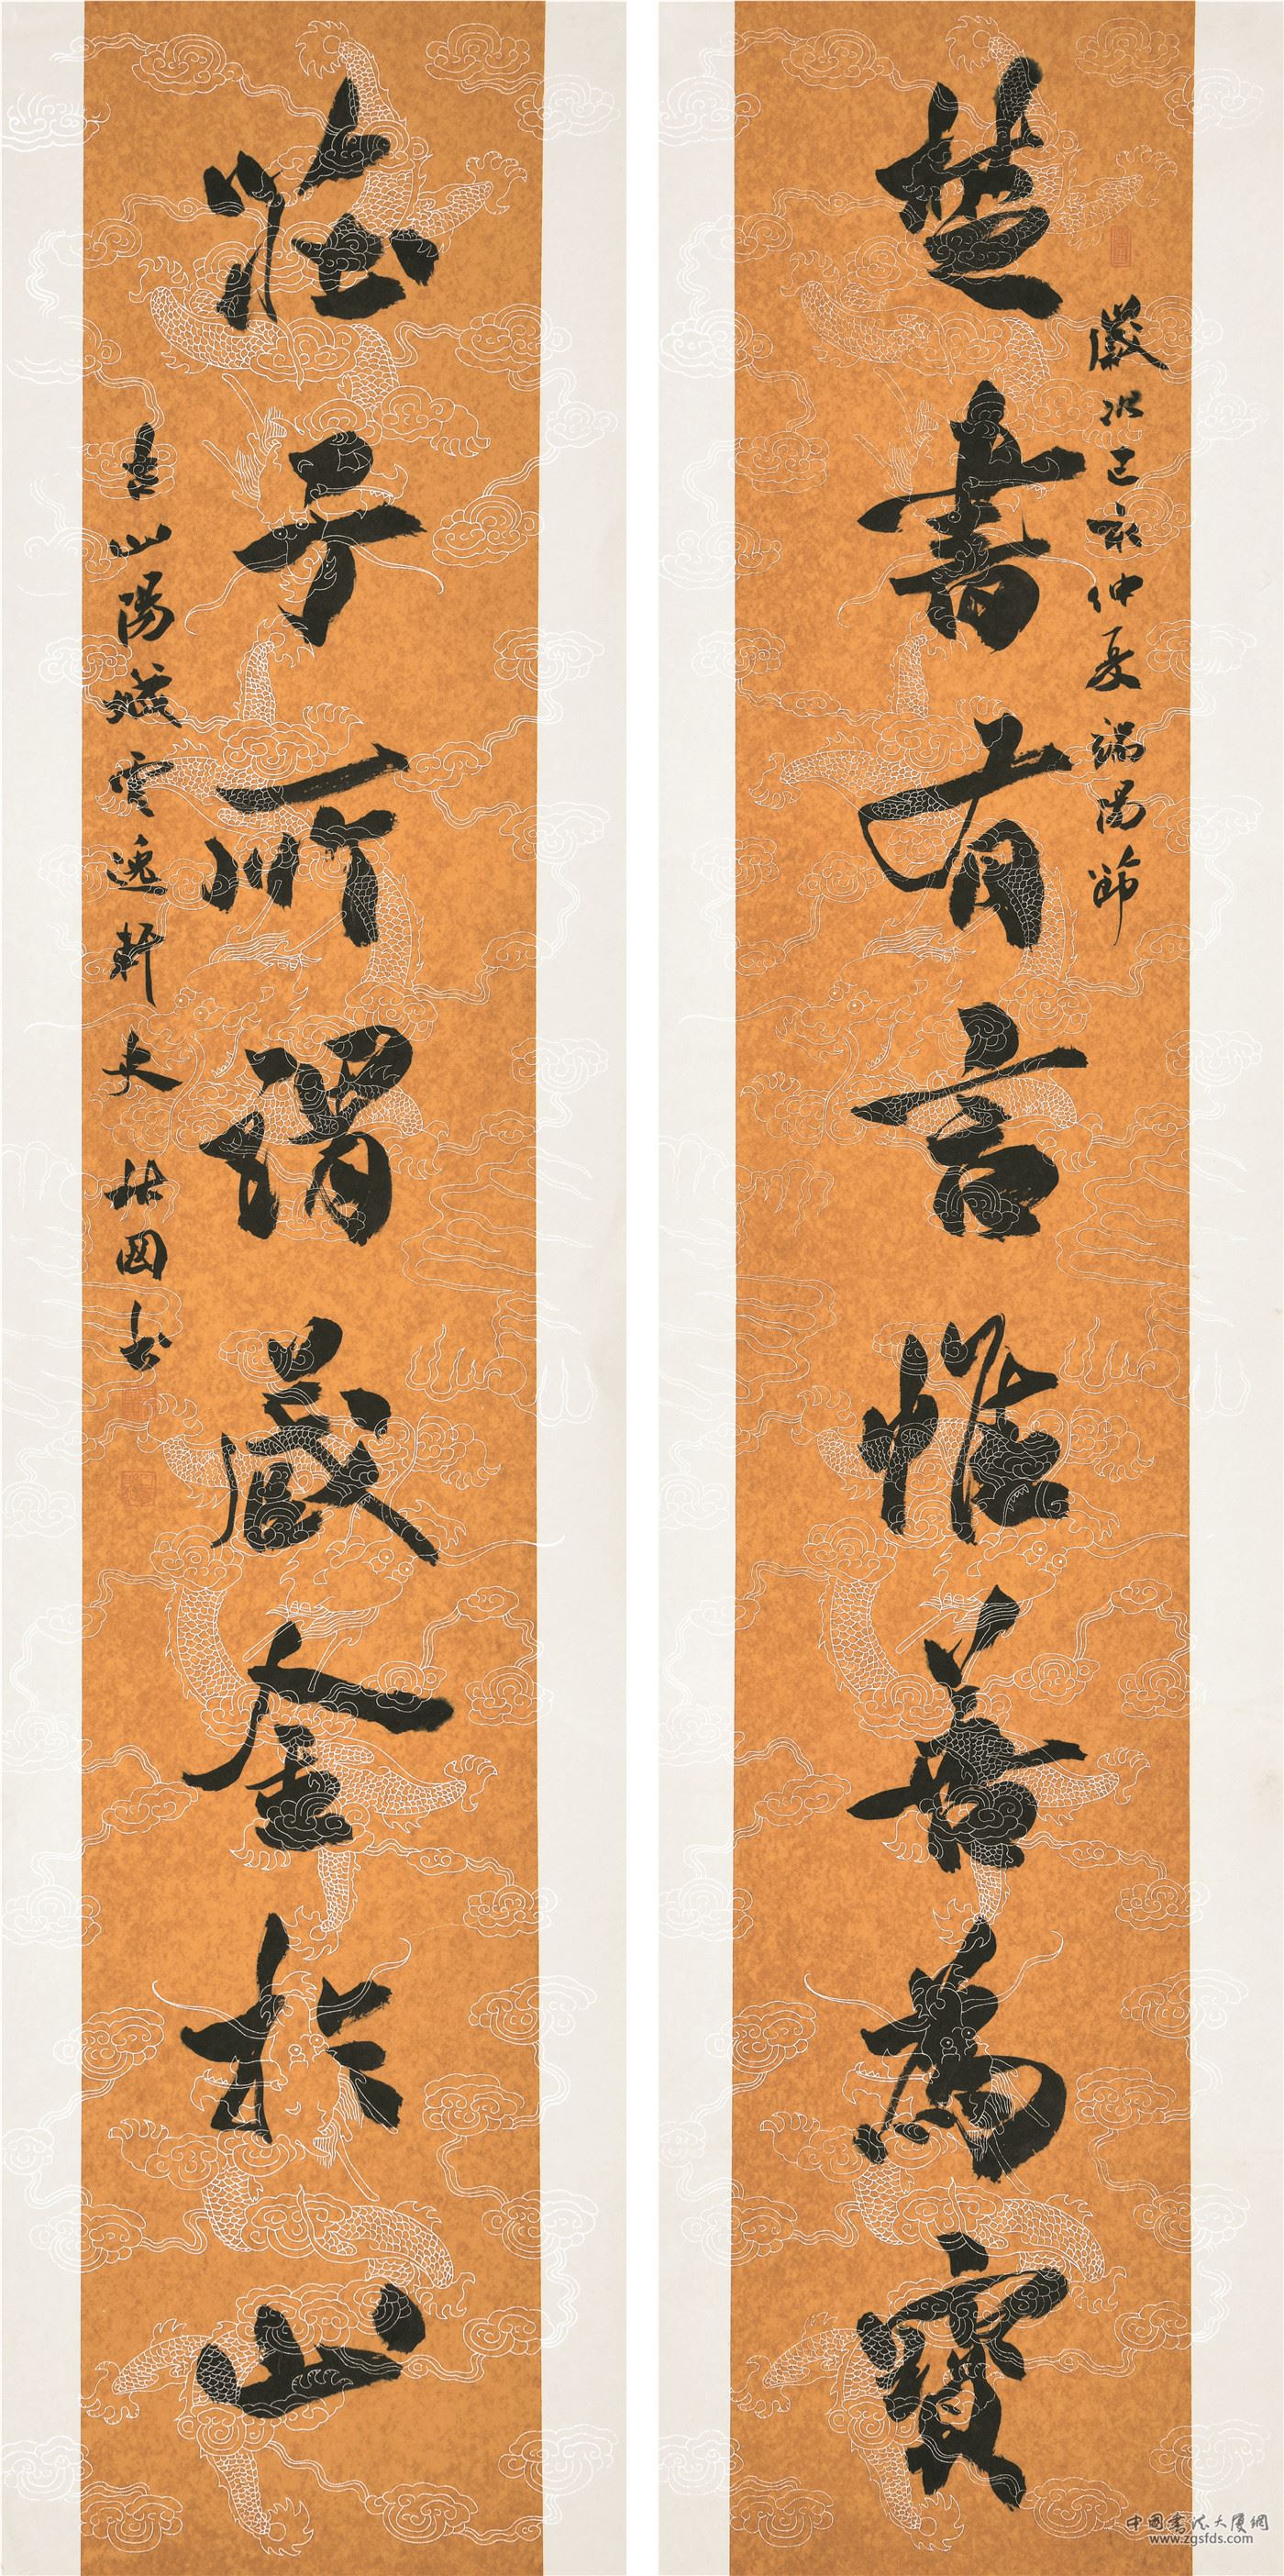 歲次己亥仲夏端陽節
楚書有言惟善為寶
莊子所謂藏金於山
山陽城雲逸軒國書
中国書法大厦網
www.zgsfds.com